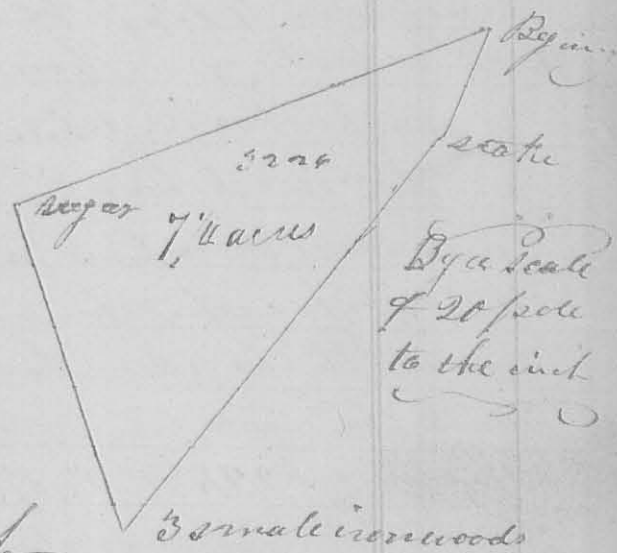 Begin
stake
3226
sugar
7 1/4 acres
By a Scale
of 20 pole
to the inch
3 small ironwoods